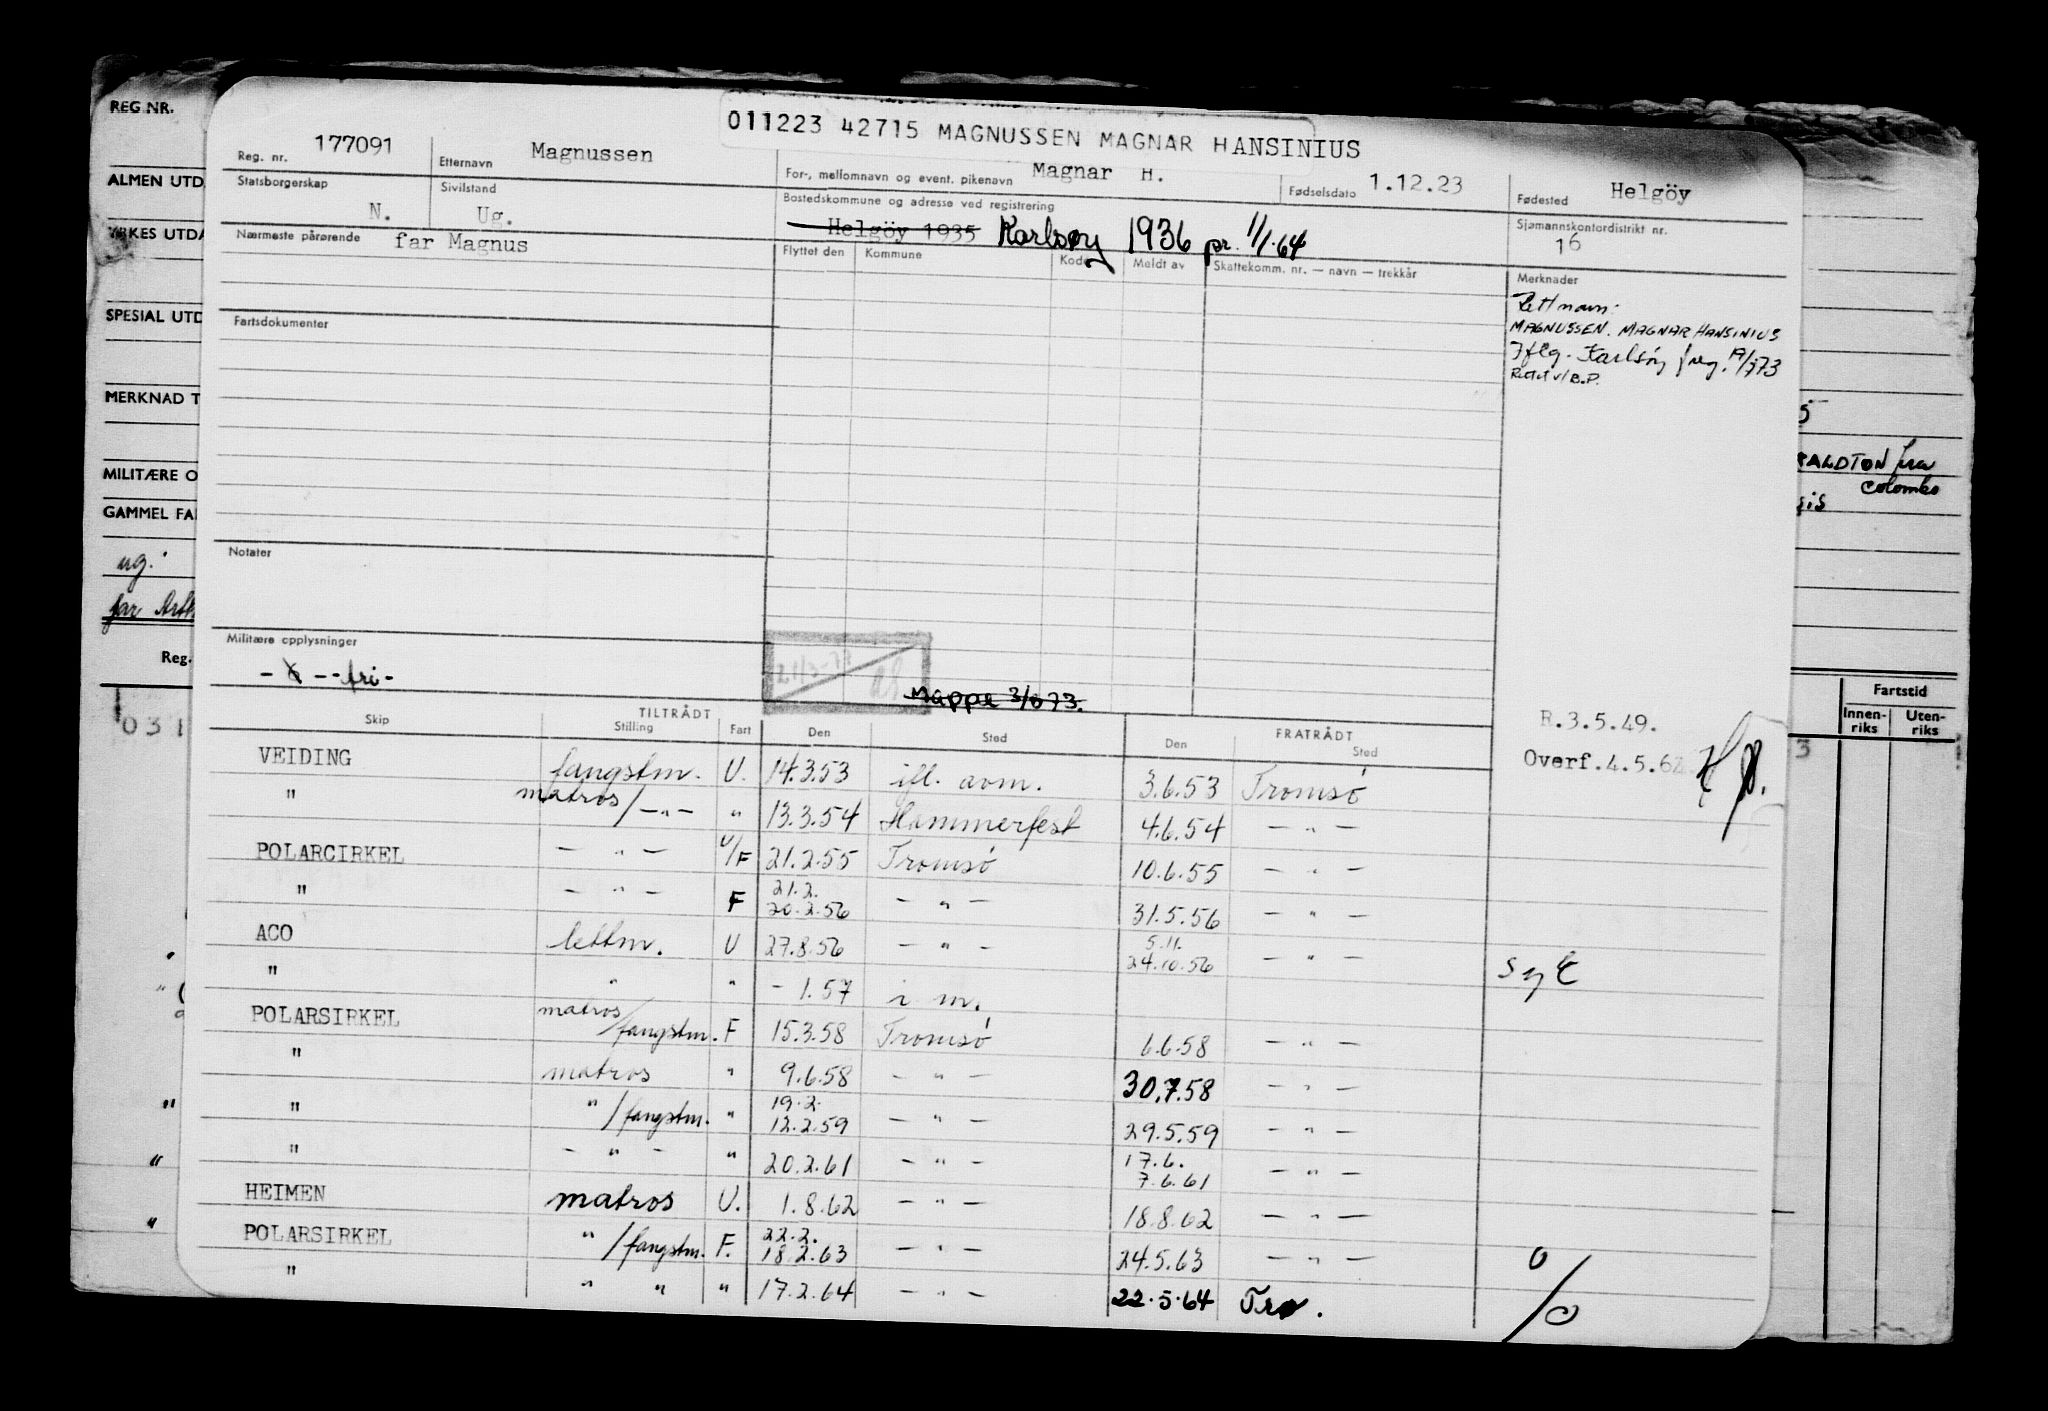 011223 42715 MAGNUSSEN MAGNAR HANSINIUS
REG NR.
ALMEN UTD
YRKES UTDA
SPESIAL UTD
MERKNAD T
MILITÆRE O
GAMMEL FA
ug.
far
Reg.
031
Reg. nr. 177091 Etternavn Magnussen For-, mellomnavn og event. pikenavn Magnar H. Fødselsdato 1.12.23 Fødested Helgöy
Statsborgerskap N. Sivilstand Ug. Bostedskommune og adresse ved registrering Helgöy 1935 Karlsøy 1936 pr. 1/1.64 Sjømannskontordistrikt nr. 16
Nærmeste pårørende far Magnus Flyttet den Kommune Kode Meldt av Skattekomm. nr. — navn — trekkår Merknader
Rett navn:
MAGNUSSEN. MAGNAR HANSINIUS
Iflg. Karlsøy freg.
Rettet v/ B.P.
Fartsdokumenter
Notater
Militære opplysninger
- fri -
21/3-77
Mappe 3/8 73.
R.3.5.49.
Overf.4.5.62
5
fra
Colombo
sis
Fartstid
Innen-riks Uten-riks
3
TILTRÅDT FRATRÅDT
Skip Stilling Fart Den Sted Den Sted
VEIDING fangstm. U. 14.3.53 ifl. avm. 3.6.53 Tromsø
" matros/—"— " 13.3.54 Hammerfest 4.6.54 — " —
POLARCIRKEL — " — U/F 21.2.55 Tromsø 10.6.55 — " —
" — " — F 21.2. 20.2.56 — " — 31.5.56 — " —
ACO lettm. U 27.8.56 — " — 5.11. 24.10.56 — " — syk
" " " - 1.57 i m.
POLARSIRKEL matros/fangstm. F 15.3.58 Tromsø 6.6.58 — " —
" matros " 9.6.58 — " — 30.7.58 — " —
" " /fangstm. " 19.2. 12.2.59 — " — 29.5.59 — " —
" — " — " 20.2.61 — " — 17.6. 7.6.61 — " —
HEIMEN matros U. 1.8.62 — " — 18.8.62 — " —
POLARSIRKEL " /fangstm. F. 22.2. 18.2.63 — " — 24.5.63 — " — 0
" " " " 17.2.64 — " — 22.5.64 Trø. /0